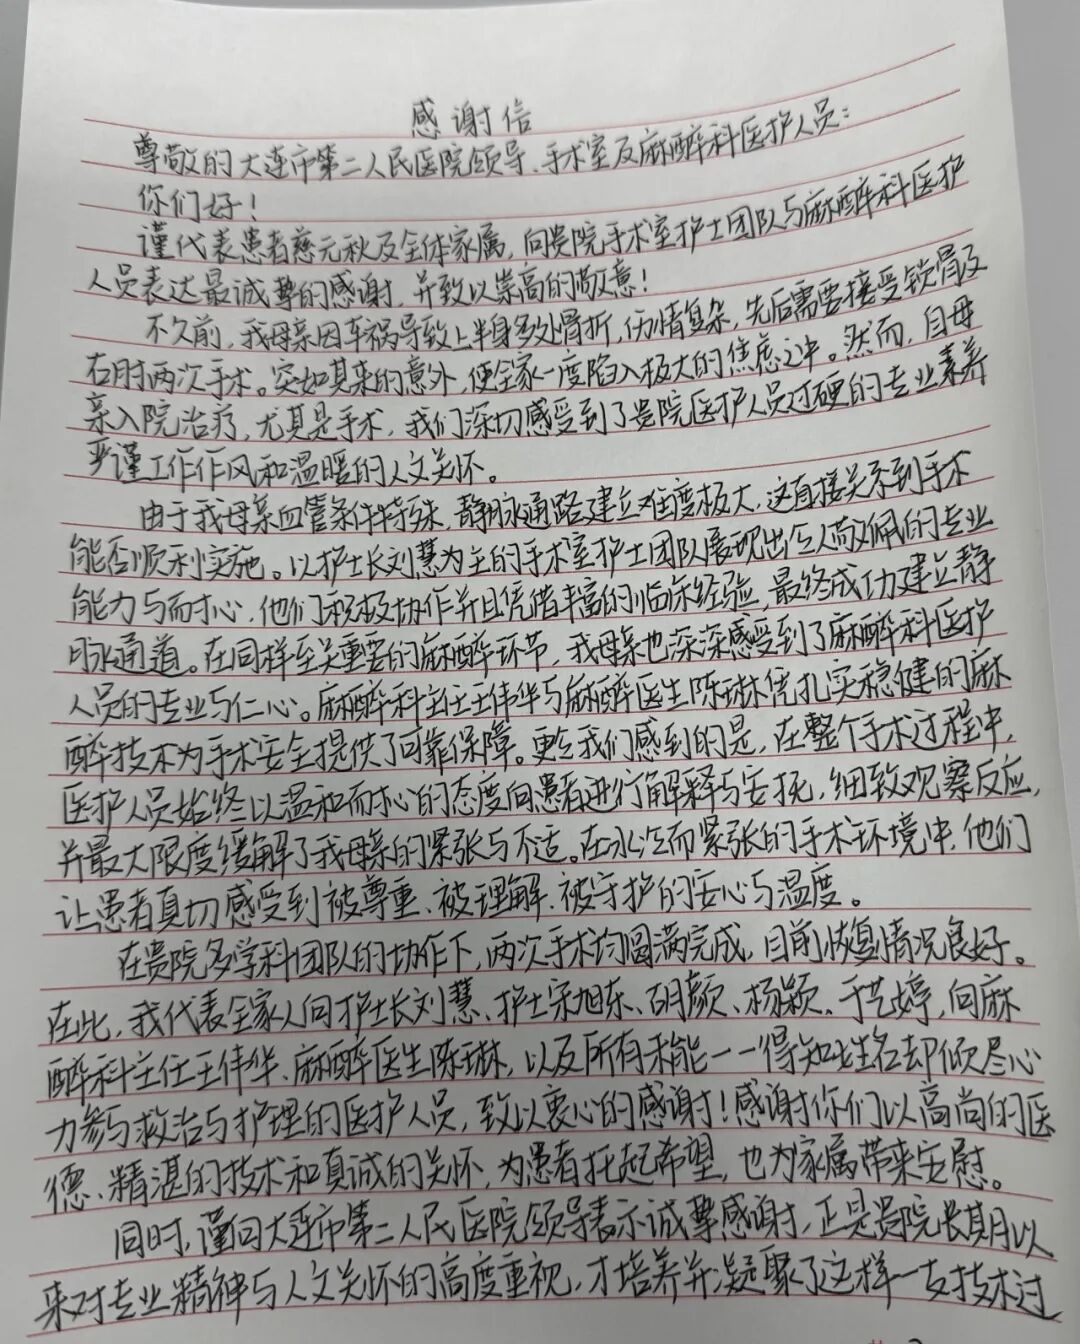 感谢信
尊敬的大连市第二人民医院领导、手术室及麻醉科医护人员:
你们好!
谨代表患者慈元秋及全体家属,向贵院手术室护士团队与麻醉科医护
人员表达最诚挚的感谢,并致以崇高的敬意!
不久前,我母亲因车祸导致上半身多处骨折,伤情复杂,先后需要接受锁骨及
右肘两次手术。突如其来的意外,使全家一度陷入极大的焦虑之中。然而,自母
亲入院治疗,尤其是手术,我们深切感受到了贵院医护人员过硬的专业素养
严谨工作作风和温暖的人文关怀。
由于我母亲血管条件特殊,静脉通路建立难度极大,这直接关系到手术
能否顺利实施。以护士长刘慧为主的手术室护士团队展现出令人敬佩的专业
能力与耐心,他们积极协作并且凭借丰富的临床经验,最终成功建立静
脉通道。在同样至关重要的麻醉环节,我母亲也深深感受到了麻醉科医护
人员的专业与仁心。麻醉科主任王伟华与麻醉医生陈琳凭扎实稳健的麻
醉技术为手术安全提供了可靠保障。更令我们感到的是,在整个手术过程中,
医护人员始终以温和而耐心的态度向患者进行解释与安抚,细致观察反应,
并最大限度缓解了我母亲的紧张与不适。在冰冷而紧张的手术环境中,他们
让患者真切感受到被尊重、被理解、被守护的安心与温度。
在贵院多学科团队的协作下,两次手术均圆满完成,目前恢复情况良好。
在此,我代表全家人向护士长刘慧、护士宋旭东、胡颜、杨颖、于艺婷,向麻
醉科主任王伟华、麻醉医生陈琳,以及所有未能一一得知姓名却倾尽心
力参与救治与护理的医护人员,致以衷心的感谢!感谢你们以高尚的医
德、精湛的技术和真诚的关怀,为患者托起希望,也为家属带来安慰。
同时,谨向大连市第二人民医院领导表示诚挚感谢,正是贵院长期以
来对专业精神与人文关怀的高度重视,才培养并凝聚了这样一支技术过